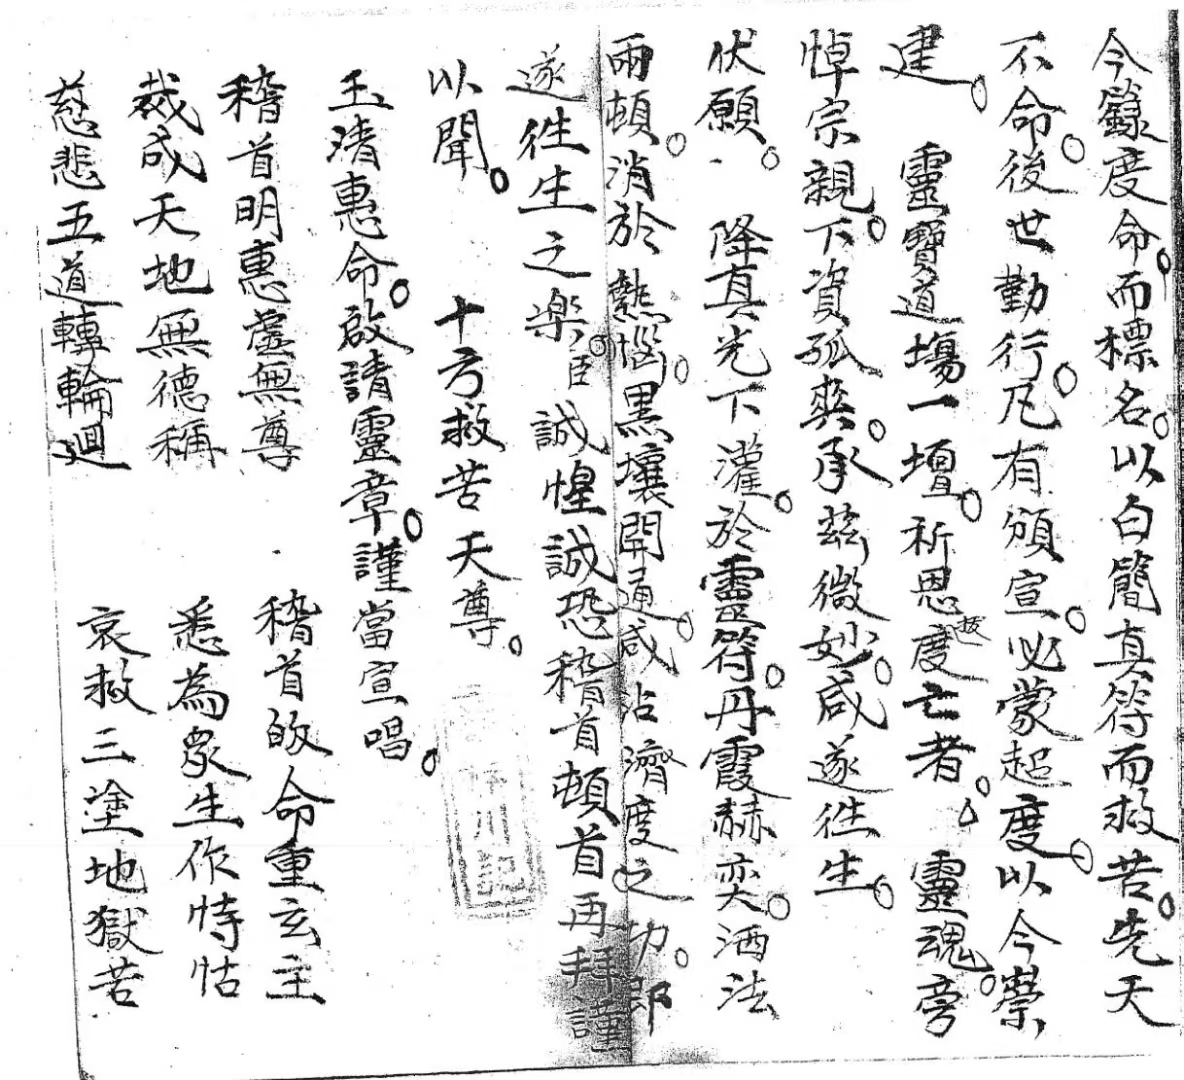 今籙度命。而標名。以白簡真符而救苦。先天
不命。後世勤行。凡有頒宣。必蒙起度。以今榮
建。 靈寶道場一壇。祈恩度拔亡者。 靈魂。旁
悼宗親。下資孤爽。承茲微妙。咸遂徃生。
伏願。 降真光下灌。於靈符。丹霞赫奕。洒法
雨頓。消於熱惱。黒壤開通。咸沾濟度之功。即
遂徃生之樂。臣 誠惶誠恐稽首頓首再拜謹
以聞。 十方救苦天尊。
玉清惠命。啟請靈章。謹當宣唱。
稽首明惠虛無尊 稽首皈命重玄主
裁成天地無德稱 悉為眾生作恃怙
慈悲五道轉輪迴 哀救三塗地獄苦